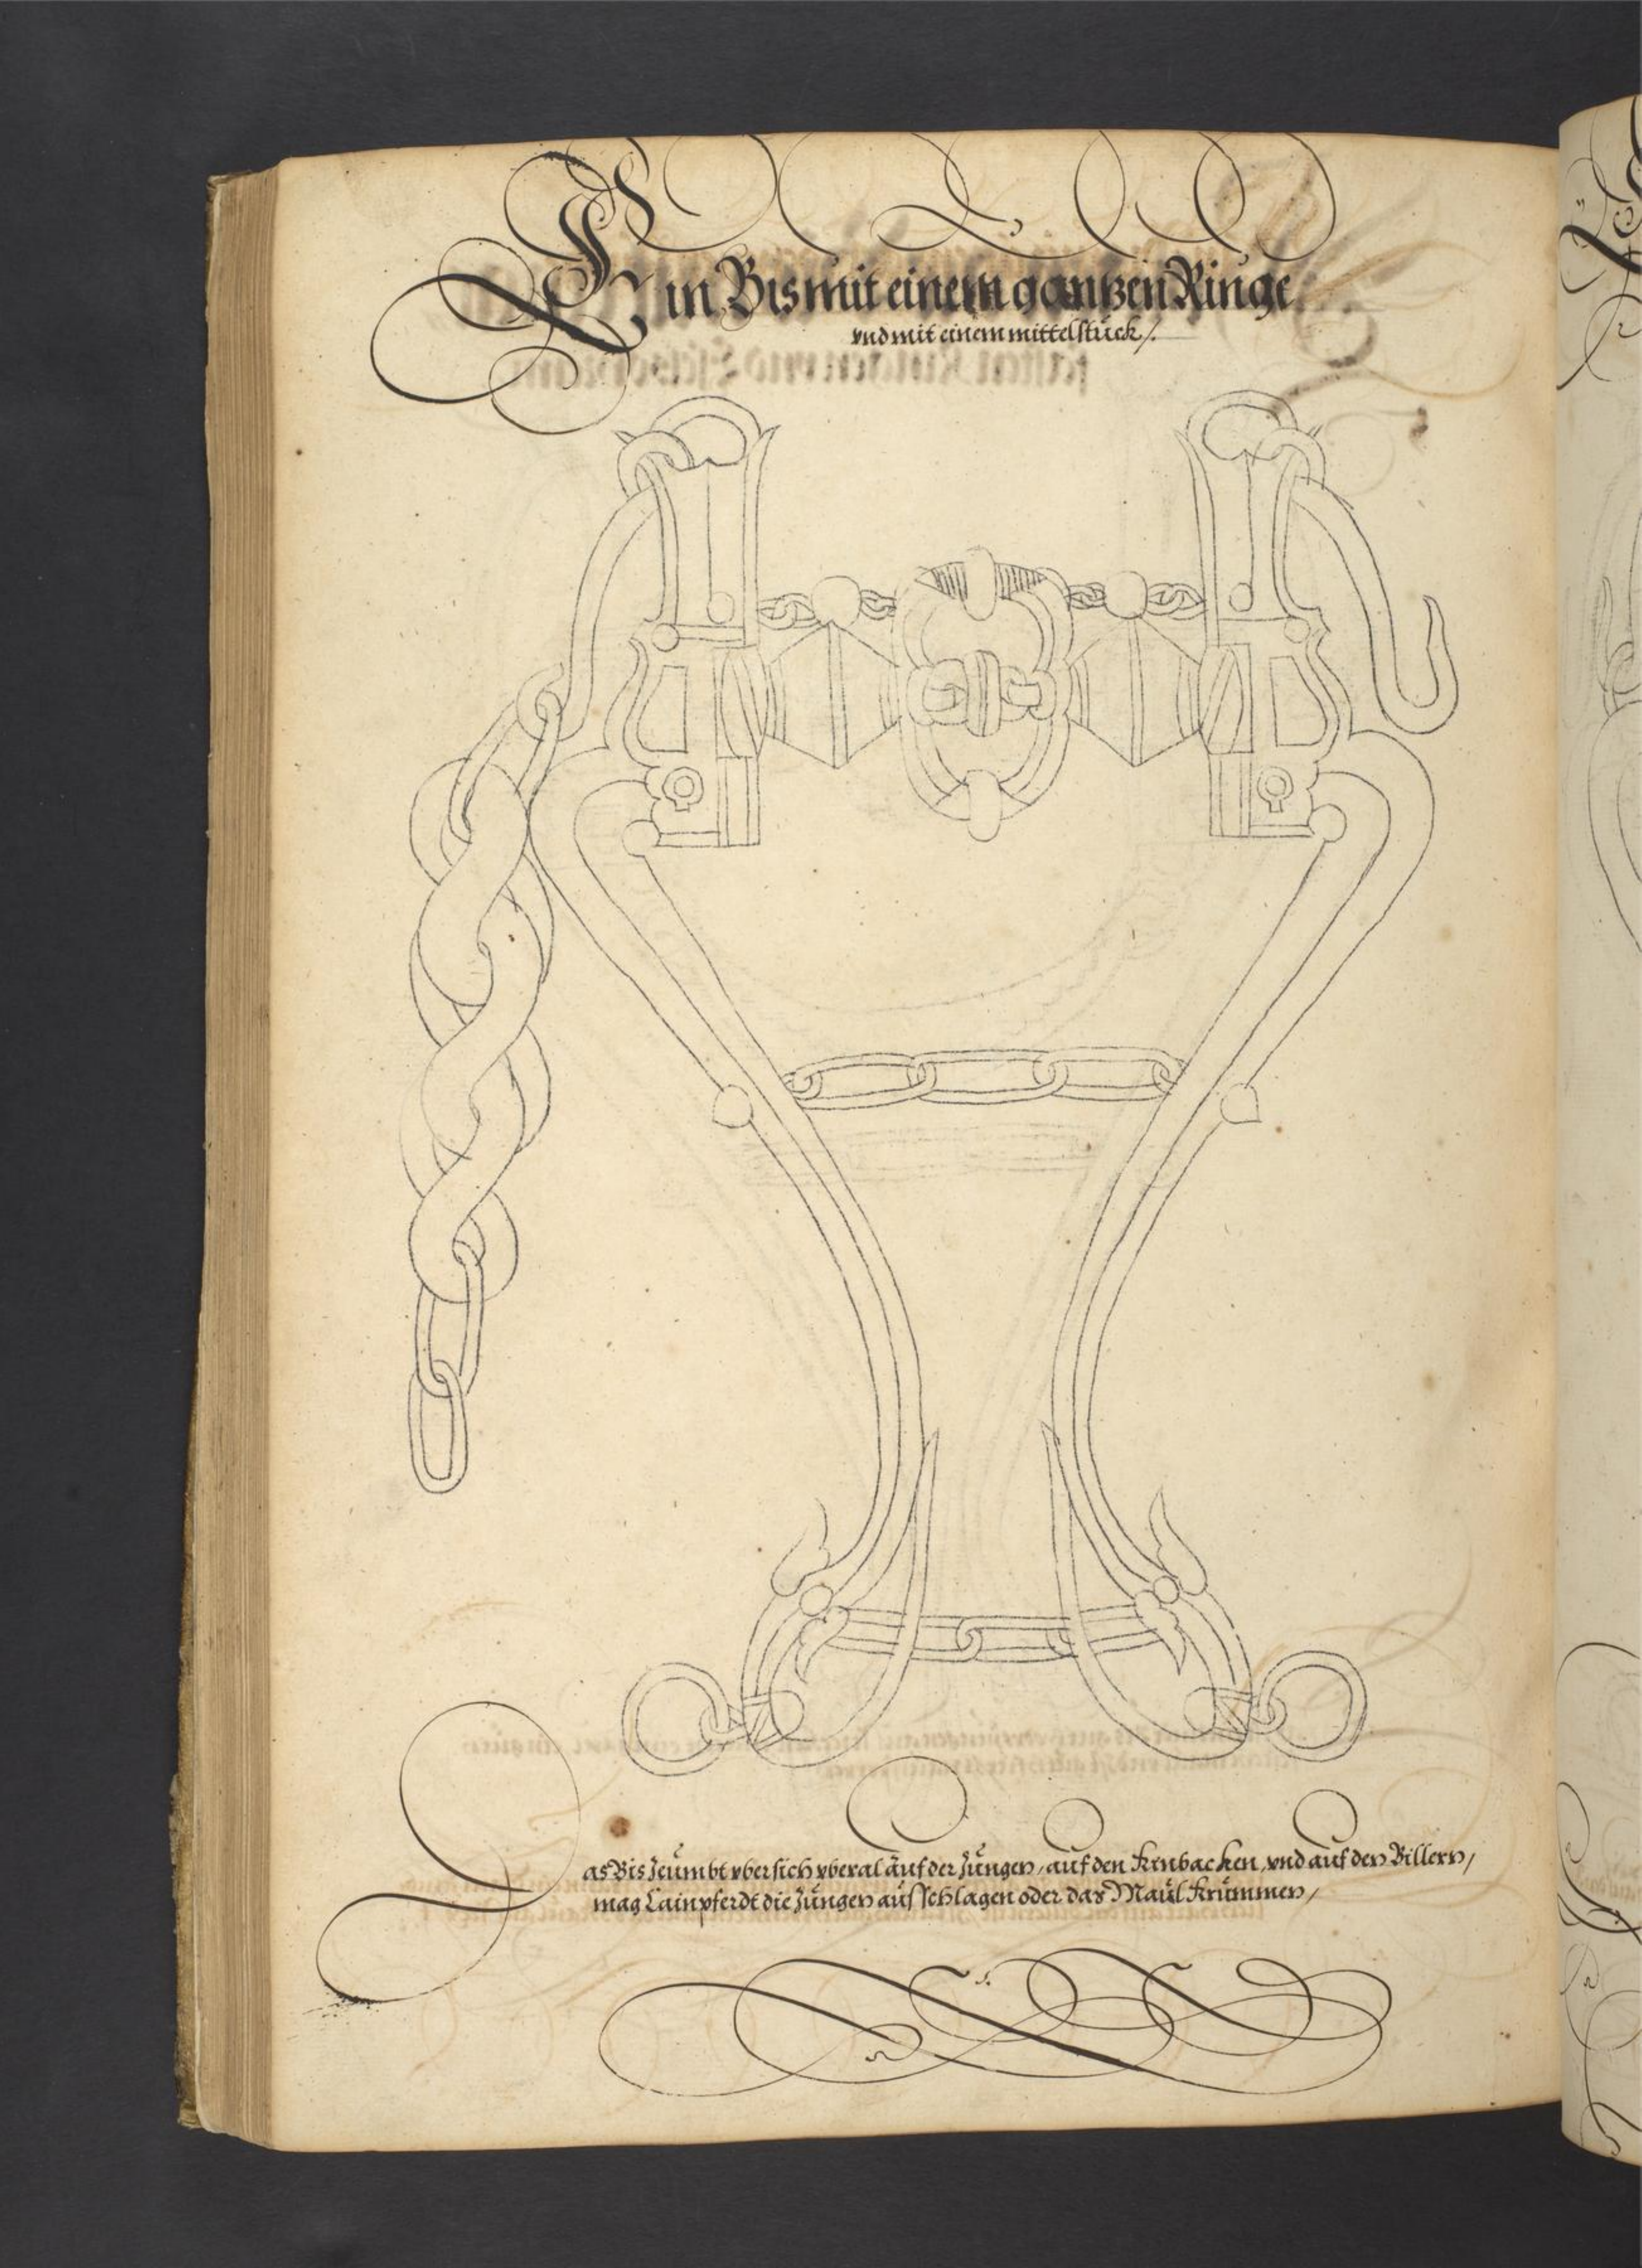 Ein Bis mit einem gantzen Ringe
vnd mit einem mittelstück /.
Das Bis Zeümbt vber sich vberal aüf der Züngen / aüf den Kinbacken, vnd aüf den Billern /
mag Kain pferdt die Züngen aüsschlagen oder das Maül Krümmen /